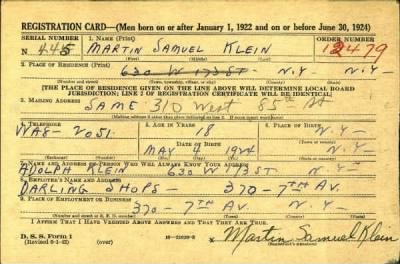 REGISTRATION CARD—(Men born on or after January 1, 1922 and on or before June 30, 1924)
SERIAL NUMBER 1. NAME (Print) ORDER NUMBER
N 445 MARTIN SAMUEL KLEIN 12479
(First) (Middle) (Last)
2. PLACE OF RESIDENCE (Print)
630 W 173 ST N.Y N.Y
(Number and street) (Town, township, village, or city) (County) (State)
[THE PLACE OF RESIDENCE GIVEN ON THE LINE ABOVE WILL DETERMINE LOCAL BOARD
JURISDICTION; LINE 2 OF REGISTRATION CERTIFICATE WILL BE IDENTICAL]
3. MAILING ADDRESS
SAME 310 West 85th St
[Mailing address if other than place indicated on line 2. If same insert word same]
4. TELEPHONE 5. AGE IN YEARS 6. PLACE OF BIRTH
WA8- 2051 18 N.Y-
DATE OF BIRTH
MAY 4 1924 N Y-
(Exchange) (Number) (Mo.) (Day) (Yr.) (State or country)
7. NAME AND ADDRESS OF PERSON WHO WILL ALWAYS KNOW YOUR ADDRESS
ADOLPH KLEIN 630 W 173 ST. N Y-
8. EMPLOYER'S NAME AND ADDRESS
DARLING SHOPS - 370 - 7TH AV.
9. PLACE OF EMPLOYMENT OR BUSINESS
370 - 7TH AV. N.Y- N.Y-
(Number and street or R. F. D. number) (Town) (County) (State)
I AFFIRM THAT I HAVE VERIFIED ABOVE ANSWERS AND THAT THEY ARE TRUE.
D. S. S. Form 1
(Revised 6-1-42) (over) 16-21630-2 Martin Samuel Klein
(Registrant's signature)